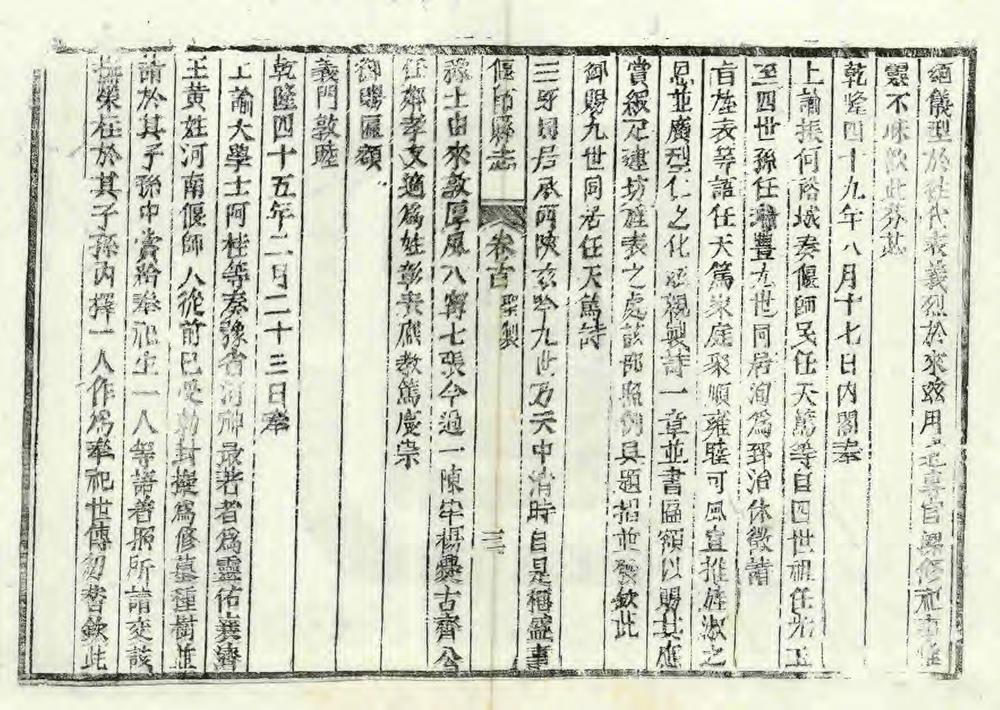 緬儀型於往代表義烈於來茲用遣專官舉修祀事惟
靈不昧歆此芬苾
乾隆四十九年八月十七日內閣奉
上諭據何裕城奏偃師民任天篤等自四世祖任光玉
至四世孫任瑞豐九世同居洵為郅治休徵請
旨旌表等語任天篤家庭聚順雍睦可風宜推旌淑之
恩並廣型仁之化親製詩一章並書匾額以賜其應
賞緞疋建坊旌表之處該部照例具題摺並發欽此
御賜九世同居任天篤詩
三 居 西陝 今九世 天中清時自是稱盛事
偃師縣志 卷首 聖製 三
豫土由來敦厚風八寧七張今過一陳牢楊爨古齊公
任鄰孝友適為姓彰 教篤慶崇
御賜匾額
義門敦睦
乾隆四十五年二月二十三日奉
上諭大學士阿桂等奏豫省河神最著者為靈佑襄濟
王黃姓河南偃師人從前已受勅封擬為修墓種樹並
請於其子孫中賞給奉祀生一人等語着照所請交該
撫榮柱於其子孫內擇一人作為奉祀世傳勿替欽此